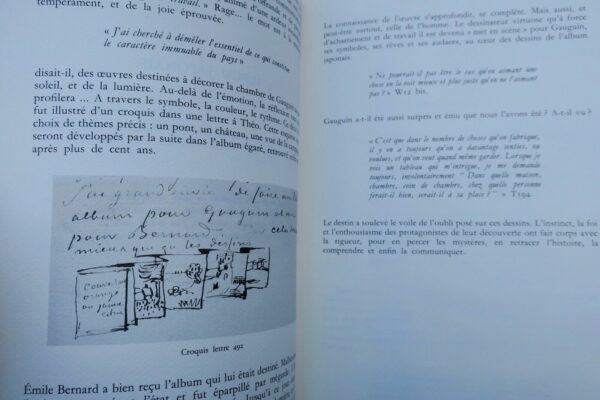 tempérament, et de la joie éprouvée.
Rage... le mot est à
« J'ai cherché à démêler l'essentiel de ce qui constitue
le caractère immuable du pays »
disait-il, des œuvres destinées à décorer la chambre de Gauguin
soleil, et de la lumière. Au-delà de l'émotion, la réflexion
profilera ... A travers le symbole, la couleur, le rythme. Ce
fut illustré d'un croquis dans une lettre à Théo. Cette
choix de thèmes précis : un pont, un château, une vue de la
seront développés par la suite dans l'album égaré, retrouvé
après plus de cent ans.
J'ai grand envie de faire
album pour Gauguin et
pour Bernard. cela
mieux que les dessins
Couverture
orange
ou jaune
citron
Croquis lettre 492
Émile Bernard a bien reçu l'album qui lui était destiné.
l'état et fut éparpillé par mégarde.
La connaissance de l'œuvre s'approfondit, se complète. Mais aussi, et
peut-être surtout, celle de l'homme. Le dessinateur virtuose qu'à force
d'acharnement et de travail il est devenu « met en scène » pour Gauguin,
ses symboles, ses rêves et ses audaces, au cœur des dessins de l'album
japonais.
« Ne pourrait-il pas être le cas qu'en aimant une
chose on la voit mieux et plus juste qu'en ne l'aimant
pas ? » W12 bis.
Gauguin a-t-il été aussi surpris et ému que nous l'avons été ? A-t-il vu ?
« C'est que dans le nombre de choses qu'on fabrique,
il y en a toujours qu'on a davantage senties, ou
voulues, et qu'on veut quand même garder. Lorsque je
vois un tableau qui m'intrigue, je me demande
toujours, involontairement " Dans quelle maison,
chambre, coin de chambre, chez quelle personne
ferait-il bien, serait-il à sa place ? " » T594.
Le destin a soulevé le voile de l'oubli posé sur ces dessins. L'instinct, la foi
et l'enthousiasme des protagonistes de leur découverte ont fait corps avec
la rigueur, pour en percer les mystères, en retracer l'histoire, la
comprendre et enfin la communiquer.